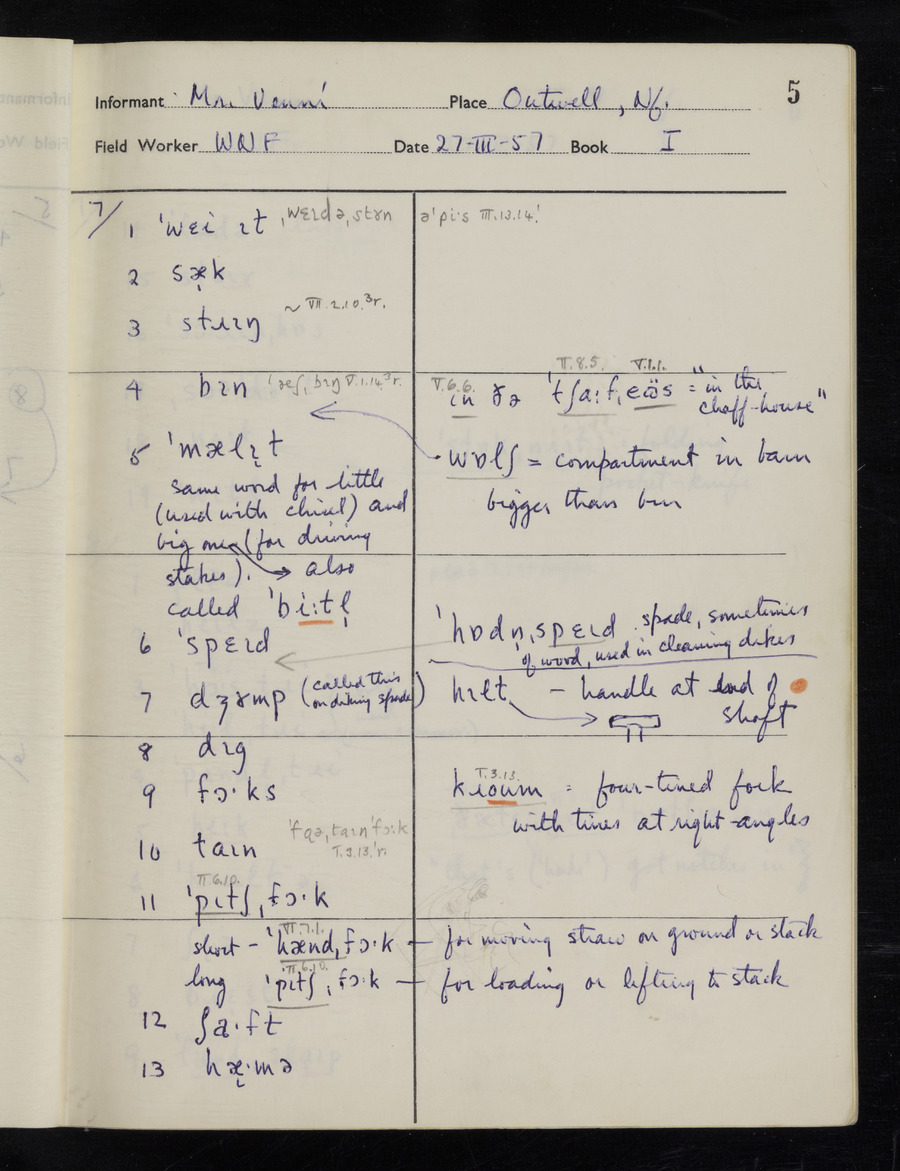 5
Informant Mr. Vennì Place Outwell, Nf.
Field Worker WNF Date 27-III-57 Book I
7/
1 ˈwɛi ɪt ˌwɛɪdə, stɤn əˈpiˑs III.13.14.
2 sæ̞k
3 stɹɪŋ ~ VII.2.10.³r.
4 bɪn ˈæʃˌbɪŋ V.1.14.³r.
V.6.6. II.8.5. V.1.1.
in ðə ˈtʃaːfˌɛʊ̈s = "in the
chaff-house"
5 ˈmælɪ̞t
same word for little
(used with chisel) and
big ones (for driving
stakes). → also
called ˈbiːtl̩
wɒlʃ = compartment in barn
bigger than bin
6 ˈspɛɪd
ˈhɒdn̩ˌspɛɪd spade, sometimes
of wood, used in cleaning dikes
7 dʒɤmp (called this
on diking spade)
hɪlt – handle at end of
shaft
8 dɪg
9 fɔˑks
I.3.13.
kɹoum = four-tined fork
with tines at right-angles
10 taɪn ˈfɑə, taɪnˈfɔːk
I.3.13.ˈr.
II.6.10.
11 ˈpɪtʃˌfɔˑk
VII.7.1.
short – ˈhændˌfɔˑk – for moving straw on ground or stack
II.6.10.
long ˈpɪtʃˌfɔˑk – for loading or lifting to stack
12 ʃaˑft
13 hæ̞ˑmə